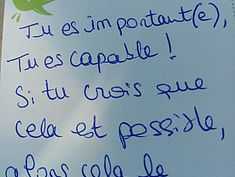 Tu es important(e),
Tu es capable !
Si tu crois que
cela est possible,
alors cela le